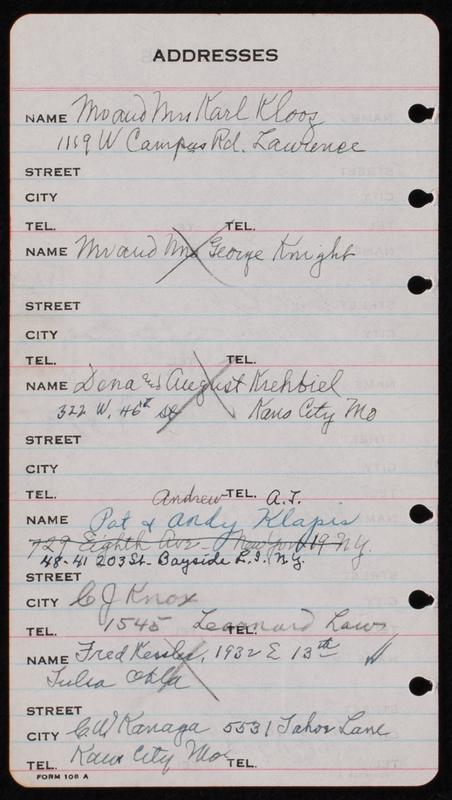 ADDRESSES
NAME Mr and Mrs Karl Kloog
1119 W Campus Rd. Lawrence
STREET
CITY
TEL. TEL.
NAME Mr and Mrs George Knight
STREET
CITY
TEL. TEL.
NAME Dena and August Krehbiel
322 W. 46th St Kans City Mo
STREET
CITY
TEL. Andrew TEL. A.T.
NAME Pat & Andy Klapis
729 Eighth Ave - New York 19 N.Y.
48-41 203 St. Bayside L.I. N.Y.
STREET
CITY C J Knox
TEL. 1545 Learnard Law TEL.
NAME Fred Kessler, 1932 E 13th
Tulsa Okla
STREET
CITY C.W Kanaga 5531 Tahoe Lane
TEL. Kans City Mo TEL.
FORM 108 A